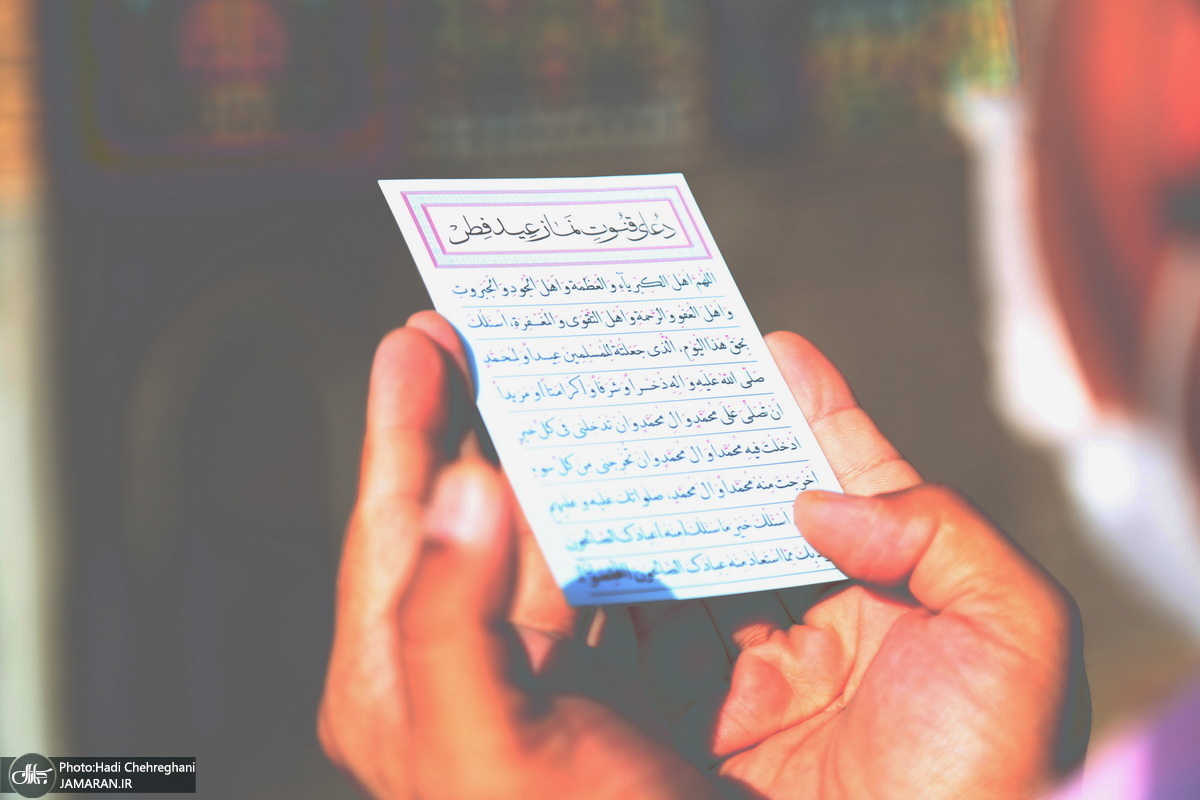 دُعای قنُوتِ نَماز عِید فِطر
اَللّهُمَّ اَهْلَ الْکِبْرِیآءِ وَالْعَظَمَةِ وَاَهْلَ الْجُودِ وَالْجَبَرُوتِ
وَاَهْلَ الْعَفْوِ وَالرَّحْمَةِ وَاَهْلَ التَّقْوی وَالْمَغْفِرَةِ، اَسْئَلُکَ
بِحَقِّ هذَا الْیَومِ، الَّذی جَعَلْتَهُ لِلْمُسْلِمینَ عیداً وَلِمُحَمَّدٍ
صَلَّی اللهُ عَلَیهِ وَالِهِ ذُخْراً وَ شَرَفاً وَ کَرامَتاً وَ مَزیداً
اَنْ تُصَلِّیَ عَلی مُحَمَّدٍ وَالِ مُحَمَّدٍ وَاَنْ تُدْخِلَنی فی کُلِّ خَیرٍ
اَدْخَلْتَ فیهِ مُحَمَّداً وَ الَ مُحَمَّدٍ وَاَنْ تُخْرِجَنی مِنْ کُلِّ سوءٍ
اَخْرَجْتَ مِنْهُ مُحَمَّداً وَ الَ مُحَمَّدٍ، صَلَواتُکَ عَلَیهِ وَ عَلَیهِم
اَسْئَلُکَ خَیرَ ما سَئَلَکَ مِنْهُ عِبادُکَ الصّالِحُونَ
مِمَّا اسْتَعاذَ مِنْهُ عِبادُکَ الصّالِحُونَ
Photo:Hadi Chehreghani
JAMARAN.IR